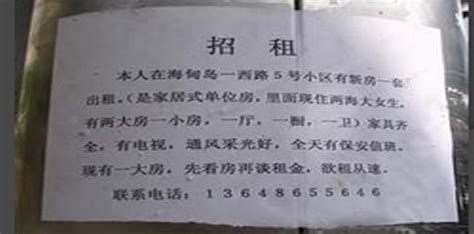 招 租
本人在海甸岛一西路5号小区有新房一套
出租。(是家居式单位房,里面现住两海大女生,
有两大房一小房,一厅,一橱,一卫)家具齐
全,有电视,通风采光好,全天有保安值班,
现有一大房,先看房再谈租金,欲租从速。
联系电话:13648655646